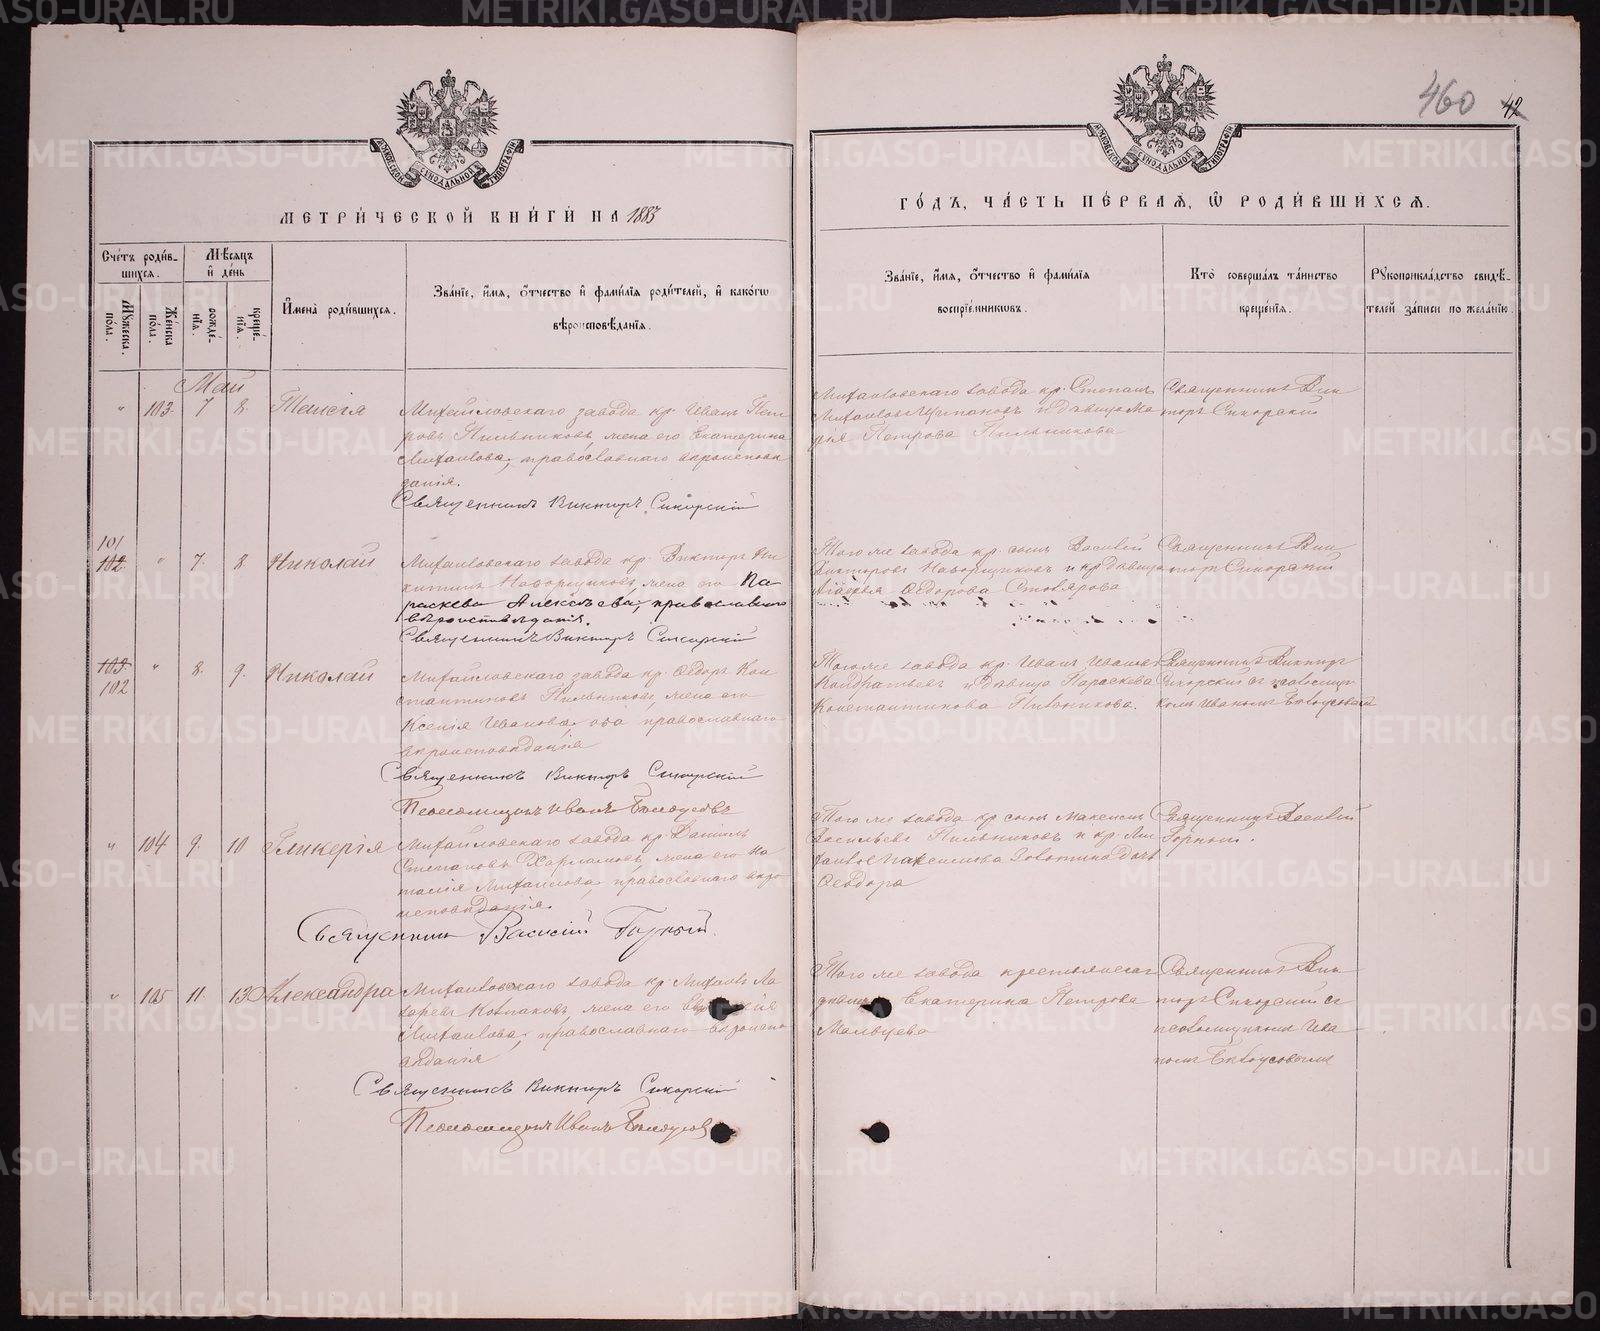 460 42
МЕТРИ́ЧЕСКОЙ КНИ́ГИ НА 1883
ГО́ДЪ, ЧА́СТЬ ПЕ́РВАѦ, Ѡ РОДИ́ВШИХСѦ.
Сче́тъ роди́в-
шихсѧ.
Мꙋ́жеска по́ла.
Же́нска по́ла.
Мѣ́сѧцъ
и҆ де́нь
рожде́-
нїѧ.
креще́-
нїѧ.
И҆мена̀ роди́вшихсѧ.
Зва́нїе, и҆́мѧ, ѻ҆́тчество и҆ фами́лїѧ роди́телей, и҆ како́гѡ
вѣроисповѣ́данїѧ.
Зва́нїе, и҆́мѧ, ѻ҆́тчество и҆ фами́лїѧ
воспрїе́мникѡвъ.
Кто̀ соверша́лъ та́инство
креще́нїѧ.
Рꙋкоприкла́дство свидѣ́-
телей за́писи по жела́нїю.
Май
" 103. 7 8. Таисія
Михайловскаго завода кр. Иванъ Пет-
ровъ Пильниковъ, жена его Екатерина
Михаилова, православнаго вѣроисповѣ-
данія.
Священникъ Викторъ Сикорскій
Михаиловскаго завода кр. Степанъ
Михаиловъ и дѣвица Ма-
рія Петрова Пильникова
Священникъ Вик-
торъ Сикорскій
101
102 " 7. 8. Николай
Михаиловскаго завода кр. Викторъ Ни-
китинъ Наборщиковъ, жена его Па-
раскева Алексѣева, православнаго
вѣроисповѣданія.
Священникъ Викторъ Сикорскій
Того же завода кр. сынъ Василій
Викторовъ Наборщиковъ и кр. дѣвица
Агафья Ѳедорова Столярова
Священникъ Вик-
торъ Сикорскій
103.
102 " 8. 9. Николай
Михайловскаго завода кр. Ѳедоръ Кон-
стантиновъ Пильниковъ, жена его
Ксенія Иванова, оба православнаго
вѣроисповѣданія
Священникъ Викторъ Сикорскій
Псаломщикъ Иванъ Бѣлоусовъ
Того же завода кр. Иванъ Ивановъ
Кондратьевъ и дѣвица Параскева
Константинова Пильникова.
Священникъ Викторъ
Сикорскій съ псаломщи-
комъ Иваномъ Бѣлоусовымъ
" 104 9. 10 Гликерія
Михайловскаго завода кр. Даніилъ
Степановъ Харламовъ, жена его На-
талія Михаилова, православнаго вѣро-
исповѣданія.
Священникъ Василій Горный.
Того же завода кр. сынъ Максимъ
Васильевъ Пильниковъ и кр. Ми-
хаила Максимова дочь
Ѳеодора
Священникъ Василій
Горный.
" 105 11. 13 Александра
Михаиловскаго завода кр. Михаилъ Ла-
заревъ Колпаковъ, жена его
Михаилова, православнаго вѣроиспо-
вѣданія
Священникъ Викторъ Сикорскій
Псаломщикъ Иванъ Бѣлоусовъ
Того же завода крестьянская
дѣвица Екатерина Петрова
Мальцева
Священникъ Вик-
торъ Сикорскій съ
псаломщикомъ Ива-
номъ Бѣлоусовымъ
METRIKI.GASO-URAL.RU